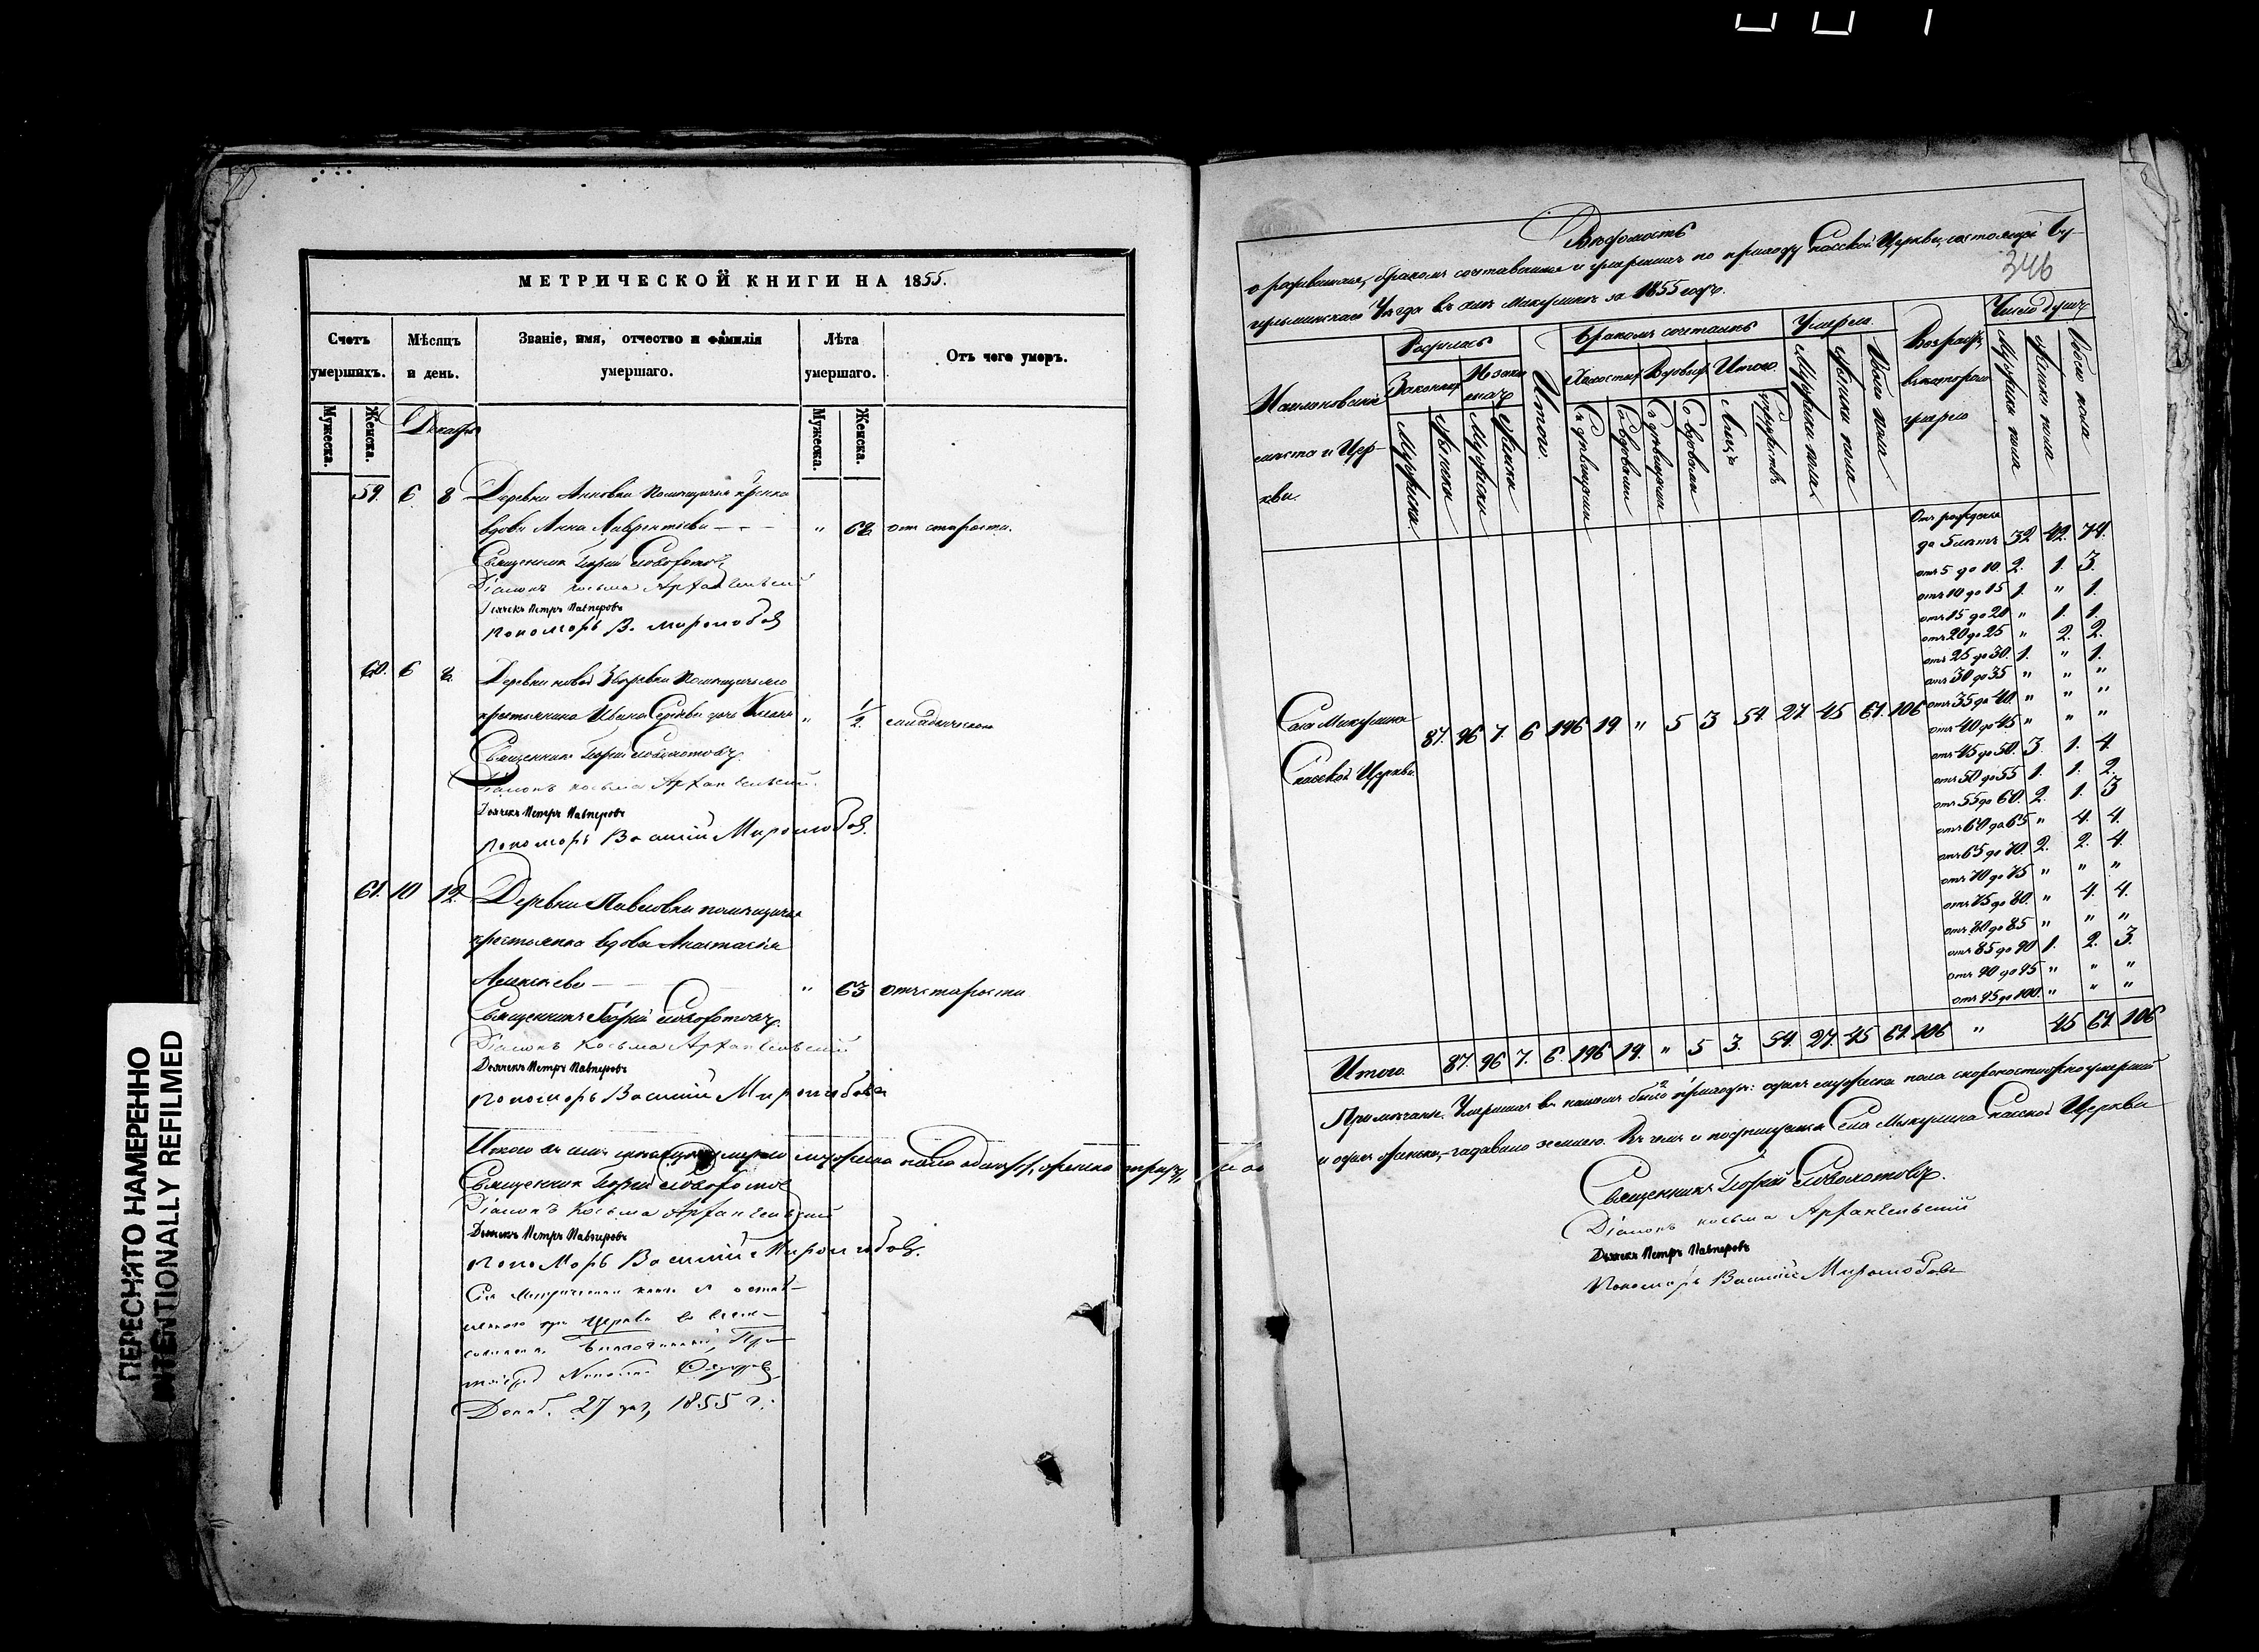 МЕТРИЧЕСКОЙ КНИГИ НА 1855.
Счетъ умершихъ.
Мѣсяцъ и день.
Званіе, имя, отчество и фамилія умершаго.
Лѣта умершаго.
Отъ чего умеръ.
Мужеска.
Женска.
Мужеска.
Женска.
Декабрь
59. 6 8 Деревни Анновки помѣщичья крᲁ҃нка
вдова Анна Лаврентіева - - - " 68 отъ старости.
Священникъ Георгій
Діаконъ Косьма Архангельскій
Дьячекъ Петръ Павперовъ
пономорь В. Миролюбов
60. 6 8. Деревни новой помѣщичьяго
крестьянина Ивана дочь " 1/2
Священникъ Георгій
Діаконъ Косьма Архангельскій.
Дьячекъ Петръ Павперовъ
пономорь Василій Миролюбов.
61. 10 12. Деревни Павловки помѣщичья
крестьянка вдова Анастасія
Алексѣева " 63 отъ старости
Священникъ Георгій
Діаконъ Косьма Архангельскій
Дьячекъ Петръ Павперовъ
пономорь Василій Миролюбовъ
Итого въ семъ мѣсяцѣ умерло мужеска пола женска
Священникъ Георгій
Діаконъ Косьма Архангельскій
Дьячекъ Петръ Павперовъ
пономорь Василій Миролюбов.
Сія Метрическая книга
при Церкви
Благочинный, Про-
Николай
Декаб. 27 дня, 1855 г.
ПЕРЕСНЯТО НАМЕРЕННО
INTENTIONALLY REFILMED
346
Вѣдомость
о родившихся, бракомъ сочетавшихся и умершихъ по приходу Спасской Церкви, состоящей Бу-
гульминскаго Уѣзда въ селѣ Микулинѣ за 1855 годъ.
Наименованіе мѣста и Церкви.
Родилось
Законныхъ
Незаконныхъ
Мужеска
Женска
Мужеска
Женска
Итого.
Бракомъ сочеталось
Холостыхъ
Вдовыхъ
Итого
Съ дѣвицами
Со вдовами
Съ дѣвицами
Со вдовами
Лицъ
Супружествъ
Умерло.
Мужеска пола
Женска пола
Обоего пола
Возрастъ, въ которомъ умерло
Число душъ
Мужеска пола
Женска пола
Обоего пола
Отъ рожденія
до 5 лѣтъ 32 42. 74.
отъ 5 до 10. 2. 1. 3.
отъ 10 до 15 1. " 1.
отъ 15 до 20 " 1. 1.
отъ 20 до 25 " 2. 2.
отъ 25 до 30. 1. " 1.
отъ 30 до 35 " " "
отъ 35 до 40. " " "
отъ 40 до 45 " " "
отъ 45 до 50. 3. 1. 4.
отъ 50 до 55 1. 1. 2.
отъ 55 до 60. 2. 1. 3
отъ 60 до 65 " 4. 4.
отъ 65 до 70. 2. 2. 4.
отъ 70 до 75 " " "
отъ 75 до 80. " 4. 4.
отъ 80 до 85 " " "
отъ 85 до 90 1. 2. 3.
отъ 90 до 95 " " "
отъ 95 до 100. " " "
Села Микулина
Спасской Церкви. 87. 96 7. 6 196 19. " 5 3 54. 27. 45 61. 106
Итого. 87. 96 7. 6. 196 19. " 5 3. 54. 27. 45 61. 106 " 45 61. 106
Примѣчаніе. Умершихъ въ нашемъ было приходѣ: одинъ мужеска пола скоропостижно умершій
и одинъ женска, задавило землею. Въ чемъ и подпишуемся Села Микулина Спасской Церкви
Священникъ Георгій
Діаконъ Косьма Архангельскій
Дьячекъ Петръ Павперовъ
Пономорь Василій Миролюбовъ